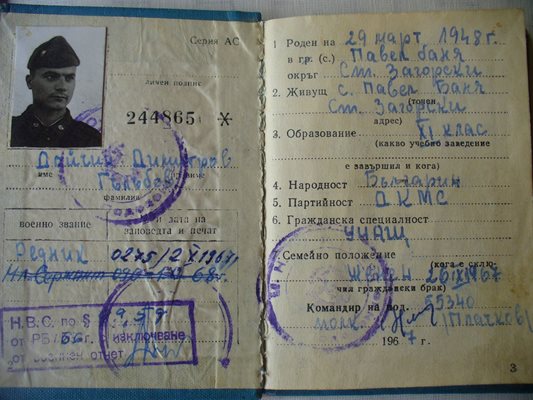 Серия АС
личен подпис
244865 Ж
Димитров
име презиме
фамилия
военно звание
и дата на
заповедта и печат
Редник 0275/2.XI.1967г.
Мл. Сержант 68г.
Н.В.С. по § 9, 59
от РБ/66 г. изключване
от военен отчет
1 Роден на 29 март 1948 г.
в гр. (с.) Павел баня
окръг Ст. Загорски
2. Живущ с. Павел Баня
Ст. Загорски
(точен
адрес)
3. Образование XI клас
(какво учебно заведение
е завършил и кога)
4. Народност Българин
5. Партийност ДКМС
6. Гражданска специалност
УЧАЩ
Семейно положение
(кога е склю-
Женен 26.XI.1967
чил граждански брак)
Командир на под. 55340
полк. (Плачков)
1967 г.
3